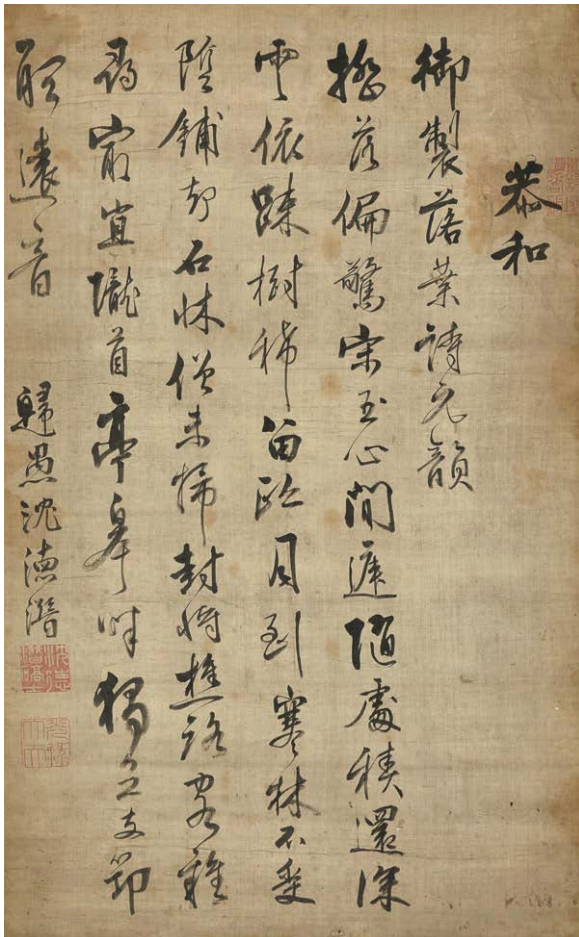 恭和
御製落葉詩元韻
搖落偏驚宋玉心閒庭隨處積還深
雲依踈樹稀留影月到寒林不受
陰鋪却石牀僧未掃封將樵路客難
尋最宜隴首亭皋畔獨立支筇
聽遠音 歸愚沈德潛